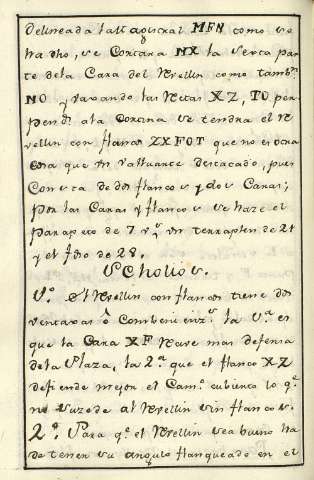 delineada la Magistral MFN como se
ha dho, se Cortara NX la sexta par
te de la Cara del Rrellin como tambn.
NO y tirando las Rectas XZ, TO per
pendr. a la Cortina se tendra el R
vellin con flancos ZXFOT que no es otra
Cosa que un valuarte destacado, pues
Consta de dos flancos y dos Caras;
por las Caras y flancos se haze el
parapeto de 7 vs. un terraplen de 21
y el fosso de 28.
Scholios.
1o. El Rvellin con flancos tiene dos
ventaxas o Combenienzs. la 1a. es
que la Cara XF Reave mas defensa
de la Plaza, la 2a. que el flanco XZ
defiende mejor el Camo. cubierto lo qe.
no suzede al Rvellin sin flancos.
2o. Para qe. el Rvellin sea bueno ha
de tener su angulo flanqueado en el